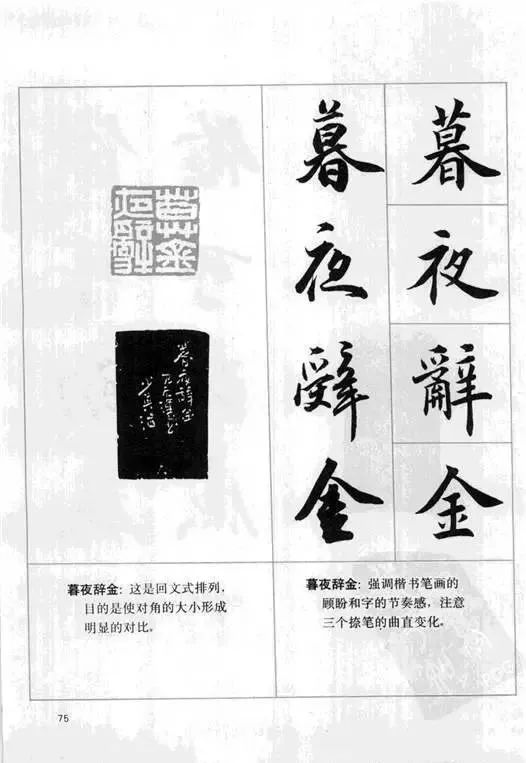 暮 暮
夜 夜
辭 辭
金 金
暮夜辞金
暮夜辞金：这是回文式排列，
目的是使对角的大小形成
明显的对比。
暮夜辞金：强调楷书笔画的
顾盼和字的节奏感，注意
三个捺笔的曲直变化。
75